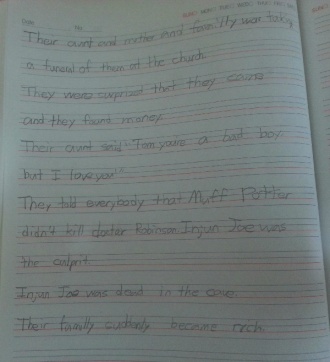 Date No. SUN MON TUE WED THU FRI SAT
Their aunt and mother and family was taking
a funeral of them at the church.
They were surprised that they came
and they found money.
Their aunt said "Tom you're a bad boy.
but I love you"
They told everybody that Muff Potter
didn't kill doctor Robinson. Injun Joe was
the culprit.
Injun Joe was dead in the cave
Their family suddenly became rich.